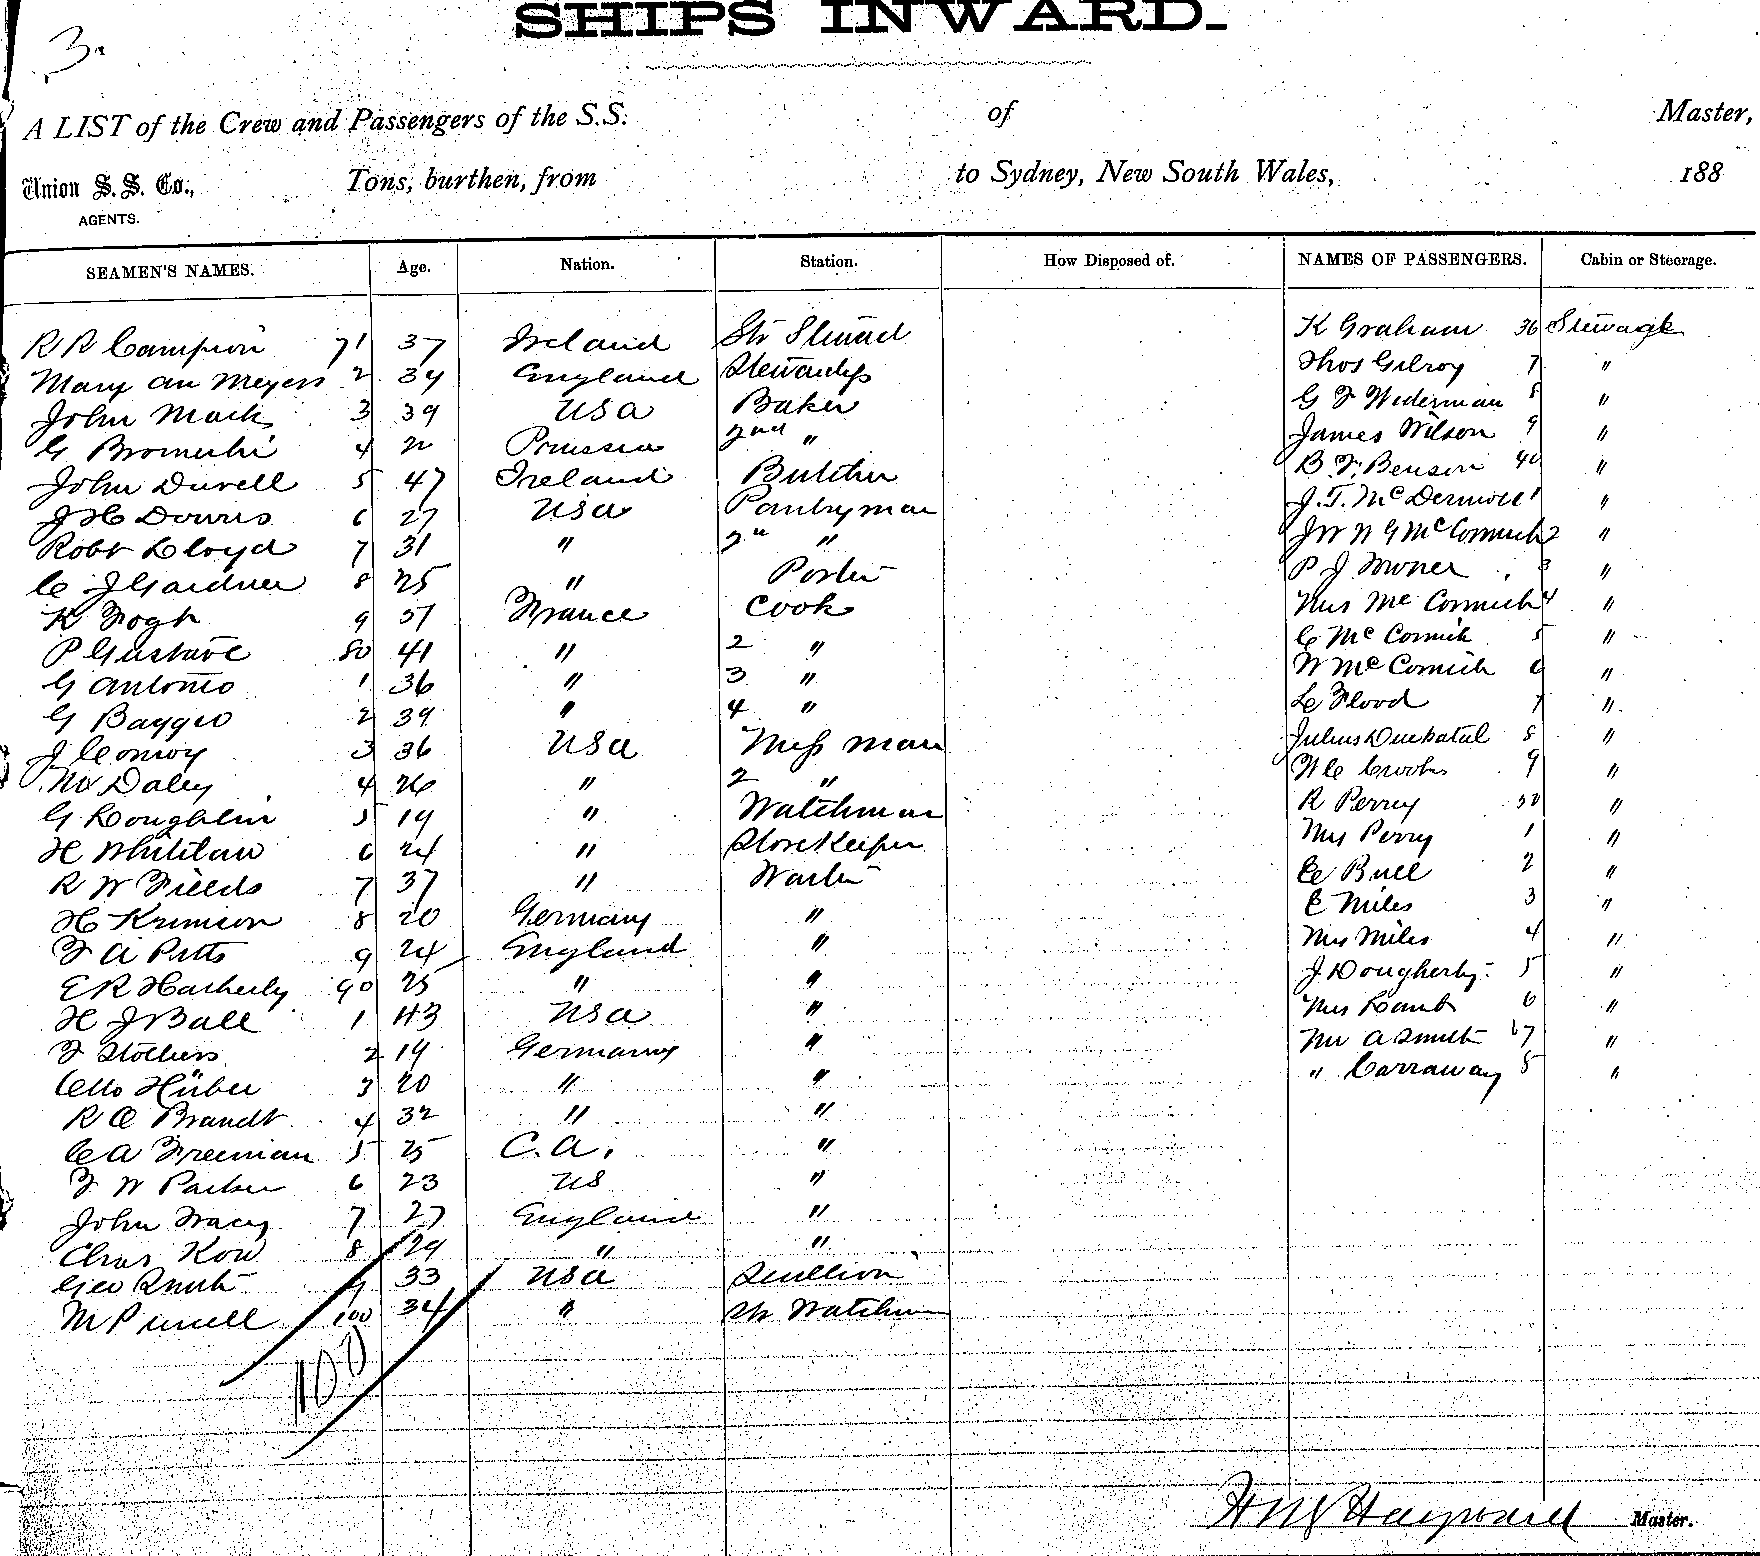 SHIPS INWARD.
3.
A LIST of the Crew and Passengers of the S.S. of Master,
Union S. S. Co., Tons, burthen, from to Sydney, New South Wales, 188
AGENTS.
SEAMEN'S NAMES. Age. Nation. Station. How Disposed of. NAMES OF PASSENGERS. Cabin or Steerage.
R R Campion 71 37 Ireland Str K Graham 36 Steerage
Mary an Meyers 2 34 England Stewardess Thos Gilroy 7 "
John Mack 3 39 USA Baker G F Wederman 8 "
G 4 Prussia 2nd " James Wilson 9 "
John Duvell 5 47 Ireland Butcher B. F. Benson 40 "
J H Downs 6 27 USA Pantryman J. T. McDermott 1 "
Robt Lloyd 7 31 " 2" " McCormick 2 "
C J Gardner 8 25 " Porter P J 3 "
K 9 57 France Cook Mrs McCormick 4 "
P Gustave 80 41 " 2 " C McCormick 5 "
G Antonio 1 36 " 3 " W McCormick 6 "
G Baggio 2 39 " 4 " L Flood 7 "
J Conroy 3 36 USA Mess man Julius 8 "
Daley 4 26 " 2 " W C Crooks 9 "
G Loughlin 5 19 " Watchman R Perry 50 "
H 6 24 " Storekeeper Mrs Perry 1 "
R W Fields 7 37 " Waiter C Bull 2 "
H 8 20 Germany " C Miles 3 "
F A Pitts 9 24 England " Mrs Miles 4 "
E R Hatherly 90 25 " " J Dougherty 5 "
H J Ball 1 43 USA " Mrs Lamb 6 "
F Stothers 2 19 Germany " Mr A Smith 7 "
Otto Hüber 3 20 " " " Carraway 8 "
R O Brandt 4 32 " "
C A Freeman 5 25 C.A. "
F W Parker 6 23 US "
John Tracy 7 27 England "
Chas Kow 8 29 " "
Geo Smith 9 33 USA Scullion
M Pursell 100 34 " Str Watchm
100
Master.